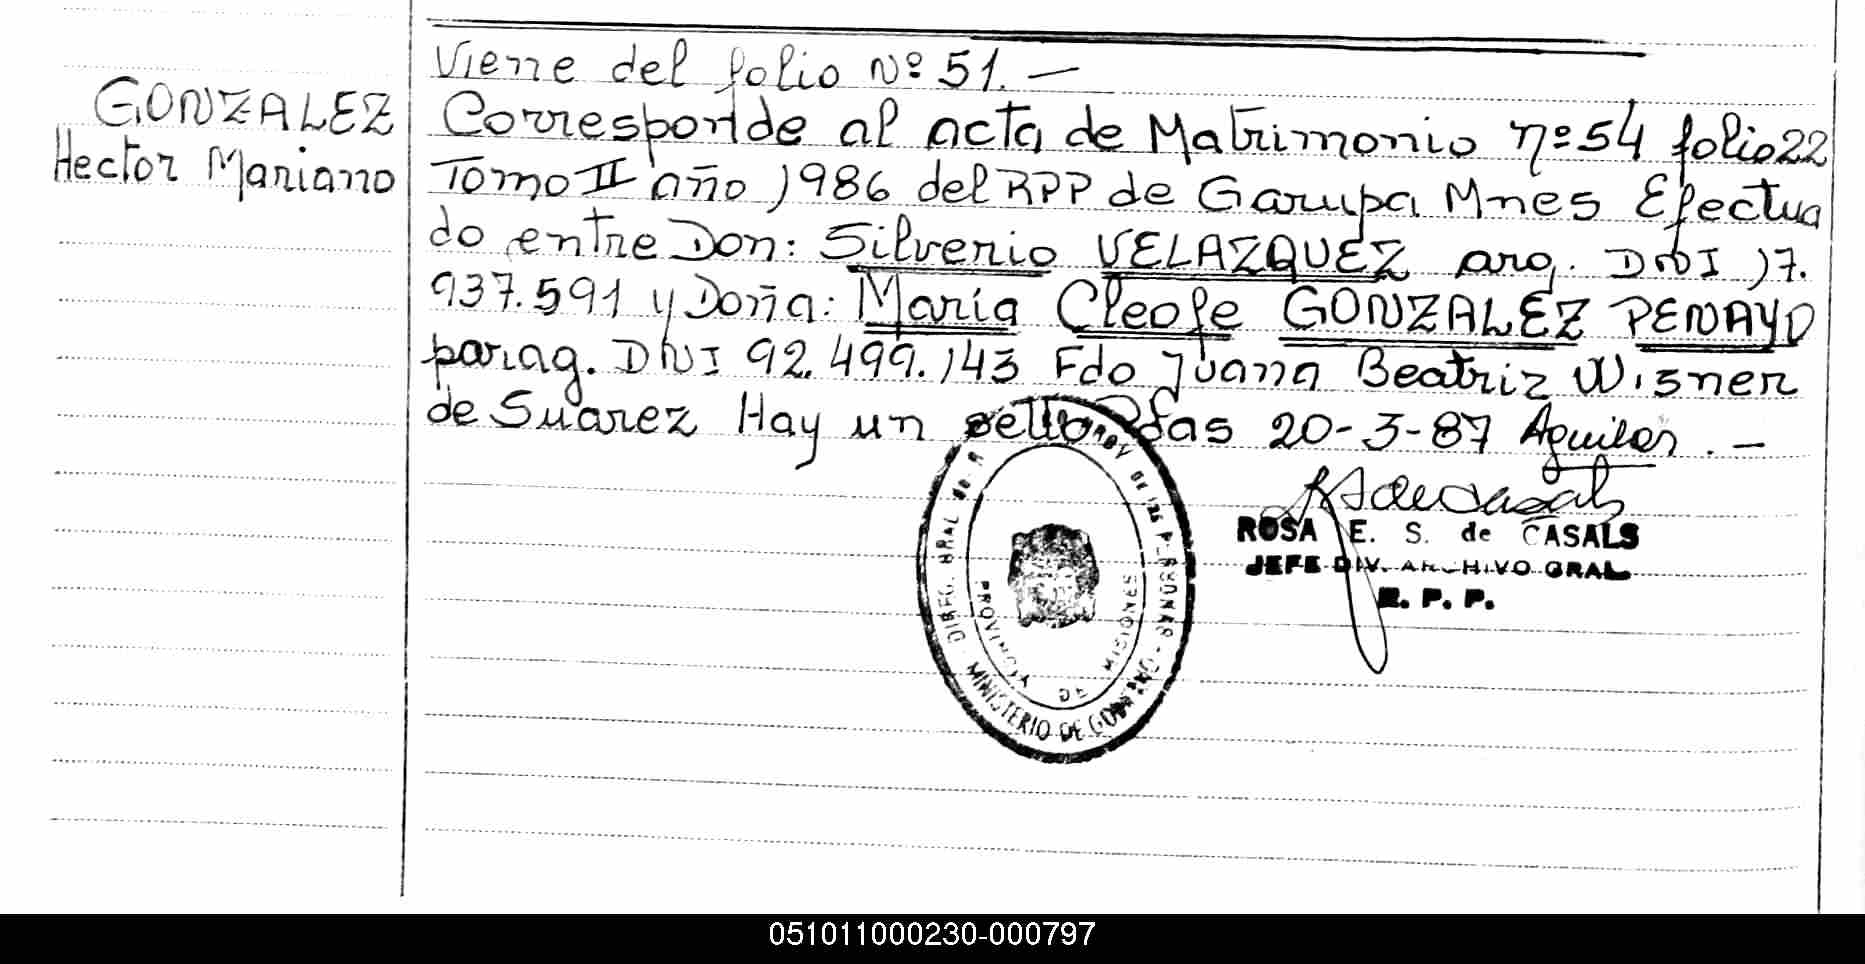 GONZALEZ
Hector Mariano
Viene del folio Nº 51. —
Corresponde al acta de Matrimonio nº 54 folio 22
Tomo II año 1986 del RPP de Garupa Mnes Efectua
do entre Don: Silverio VELAZQUEZ arg. DNI 17.
937.591 y Doña: María Cleofe GONZALEZ PENAYO
parag. DNI 92.499.143 Fdo Juana Beatriz Wisner
de Suarez Hay un sello Pdas 20-3-87 Aguilar . —
ROSA E. S. de CASALS
JEFE DIV. ARCHIVO GRAL
R. P. P.
DIREC. GRAL de DE LAS PERSONAS
MINISTERIO DE GOBIERNO
PROVINCIA DE MISIONES
051011000230-000797